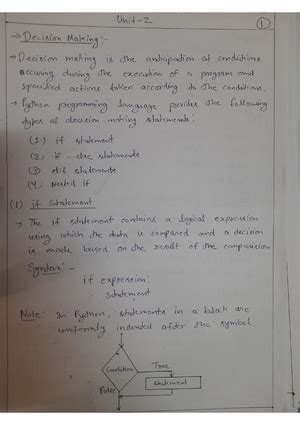 Unit-2
1
→ Decision Making:-
→ Decision making is the anticipation of conditions
occuring during the execution of a program and
specified actions taken according to the conditions.
→ Python programming language provides the following
types of decision-making statements:
(1) if statement
(2) if - else statements
(3) elif statements
(4) Nested If
(1) if Statement
→ The if statement contains a logical expression
using which the data is compared and a decision
is made based on the result of the comparision
Syntax:-
if expression:
statement
Note: In Python, statements in a block are
uniformly indented after the symbol
Condition
True
statement
False